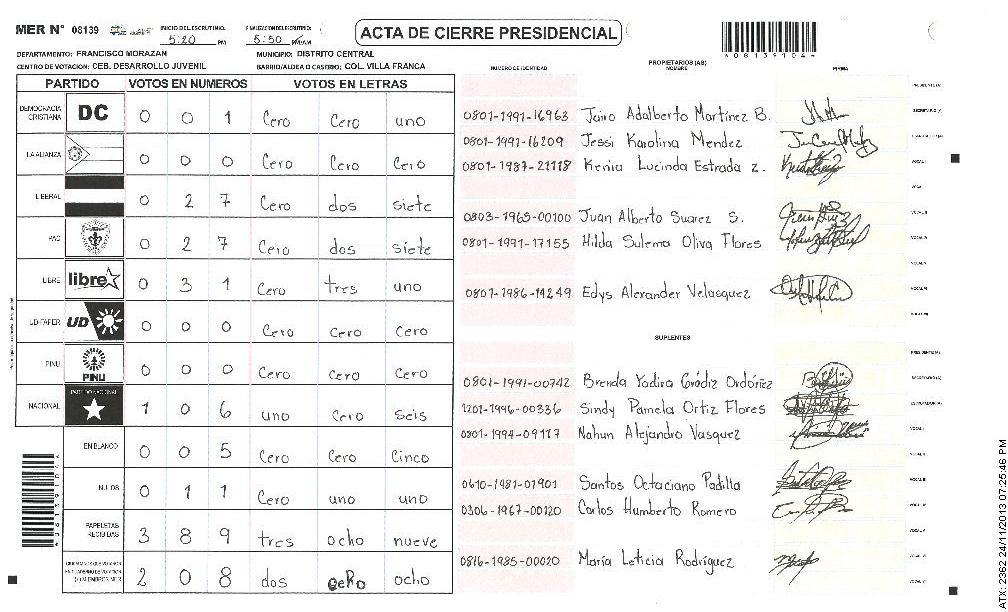 MER N° 08139 INICIO DEL ESCRUTINIO: 5:20 PM FINALIZACION DEL ESCRUTINIO: 5:50 PM/AM
ACTA DE CIERRE PRESIDENCIAL
*08139104*
DEPARTAMENTO: FRANCISCO MORAZAN MUNICIPIO: DISTRITO CENTRAL
CENTRO DE VOTACION: CEB. DESARROLLO JUVENIL BARRIO/ALDEA O CASERIO: COL. VILLA FRANCA
PARTIDO VOTOS EN NUMEROS VOTOS EN LETRAS
DEMOCRACIA CRISTIANA DC 0 0 1 Cero Cero uno
LA ALIANZA 0 0 0 Cero Cero Cero
LIBERAL 0 2 7 Cero dos siete
PAC 0 2 7 Cero dos siete
LIBRE libre 0 3 1 Cero tres uno
UD-FAPER UD 0 0 0 Cero Cero Cero
PINU PINU 0 0 0 Cero Cero Cero
NACIONAL PARTIDO NACIONAL 1 0 6 uno Cero seis
EN BLANCO 0 0 5 Cero Cero Cinco
NULOS 0 1 1 Cero uno uno
PAPELETAS RECIBIDAS 3 8 9 tres ocho nueve
CIUDADANOS QUE VOTARON EN CUADERNO DE VOTACION (+) MIEMBROS MER 2 0 8 dos cero ocho
NUMERO DE IDENTIDAD PROPIETARIOS (AS) NOMBRE FIRMA
PRESIDENTE (A)
0801-1991-16963 Jairo Adalberto Martinez B. SECRETARIO (A)
0801-1991-16209 Jessi Karolina Mendez
0801-1987-21118 Kenia Lucinda Estrada Z. VOCAL I
0803-1965-00100 Juan Alberto Suarez S.
0801-1991-17155 Hilda Sulema Oliva Flores
0801-1986-14249 Edys Alexander Velasquez
SUPLENTES
PRESIDENTE (A)
0801-1991-00742 Brenda Yadira Grádiz Ordóñez SECRETARIO (A)
1201-1996-00336 Sindy Pamela Ortiz Flores ESCRUTADOR (A)
0801-1994-09117 Nahun Alejandro Vasquez VOCAL I
0610-1981-01901 Santos Octaciano Padilla
0306-1967-00120 Carlos Humberto Romero
0816-1985-00020 María Leticia Rodríguez
ATX: 2362 24/11/2013 07:25:46 PM